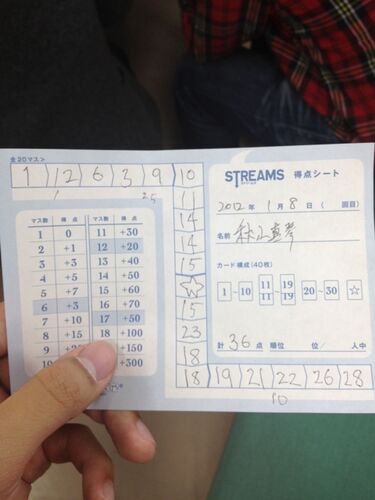 全20マス>
1 12 6 3 9 10
25
11
14
14
15
☆
15
23
18
18 19 21 22 26 28
10
マス数 得点 マス数 得点
1 0 11 +30
2 +1 12 +20
3 +3 13 +40
4 +5 14 +50
5 +7 15 +60
6 +3 16 +70
7 +10 17 +50
8 +15 18 +100
9 +150
+300
STREAMS 得点シート
ストリームス
2012年 1月 8日 ( 回目)
名前
カード構成(40枚)
1~10 11~19 11~19 20~30 ☆
計 36点 順位 位/ 人中